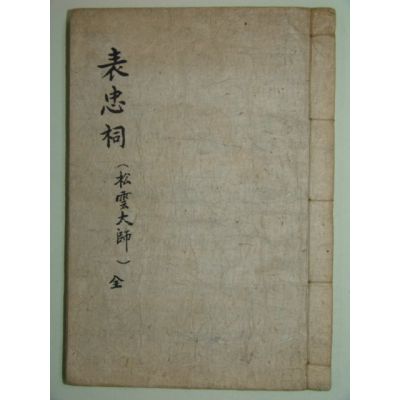 表忠祠（松雲大師）全